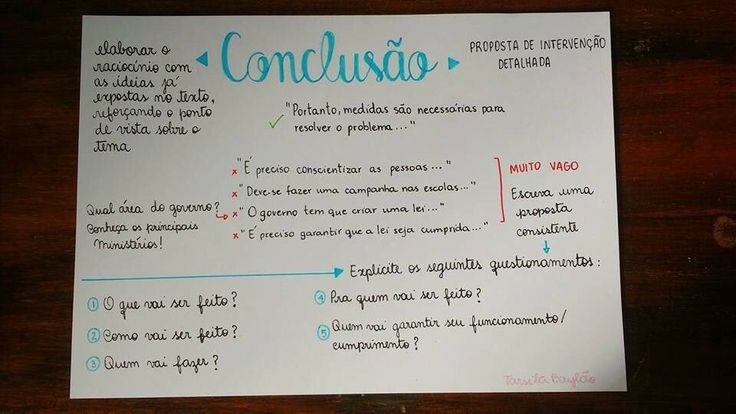 Conclusão
elaborar o
raciocínio com
as ideias já
expostas no texto,
reforçando o ponto
de vista sobre o
tema
PROPOSTA DE INTERVENÇÃO
DETALHADA
"Portanto, medidas são necessárias para
resolver o problema..."
"É preciso conscientizar as pessoas..."
"Deve-se fazer uma campanha nas escolas..."
"O governo tem que criar uma lei..."
"É preciso garantir que a lei seja cumprida..."
Qual área do governo?
Conheça os principais
Ministérios!
MUITO VAGO
Escreva uma
proposta
consistente
Explicite os seguintes questionamentos:
1 O que vai ser feito?
2 Como vai ser feito?
3 Quem vai fazer?
4 Pra quem vai ser feito?
5 Quem vai garantir seu funcionamento/
cumprimento?
Tarsila Baylão